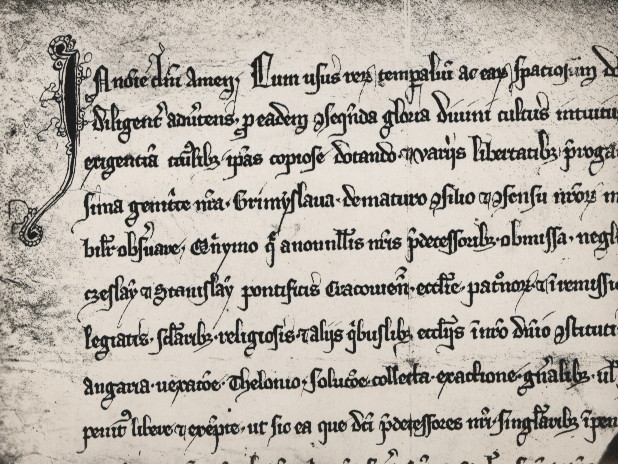 In noīe dn̄i amen. Cum usus reꝝ temporaliū ac eaꝝ spatiorum
diligent᾽ adu᾽tens, ꝓ eadem ꝯseqn̄da gloria diuini cultus intuitu
exigentia ip̄as copiose dotando ⁊ uarijs libertatibꝫ p̄roga
sima genit᾽ce nr̄a Grimyslaua de maturo ꝯsilio ⁊ ꝯsensu nr̄oꝝ
bilr̄ obs᾽uare, q̄ a nonullis nr̄is p̄decessoribꝫ obmissa, negl
czeslay ⁊ Stanislay pontificis Cracouien̄ eccl̄ie, pat᾽noꝝ ⁊ in remissi
religiosis ⁊ alijs q̄buslibꝫ eccl̄ijs in nr̄o dn̄io ꝯstituti
angaria uexatōe Thelonio, solutōe collecta exactione gn̄alibꝫ ul᾽
libere ⁊ ut sic ea que dc̄i p̄decessores nr̄i singl̄aribꝫ